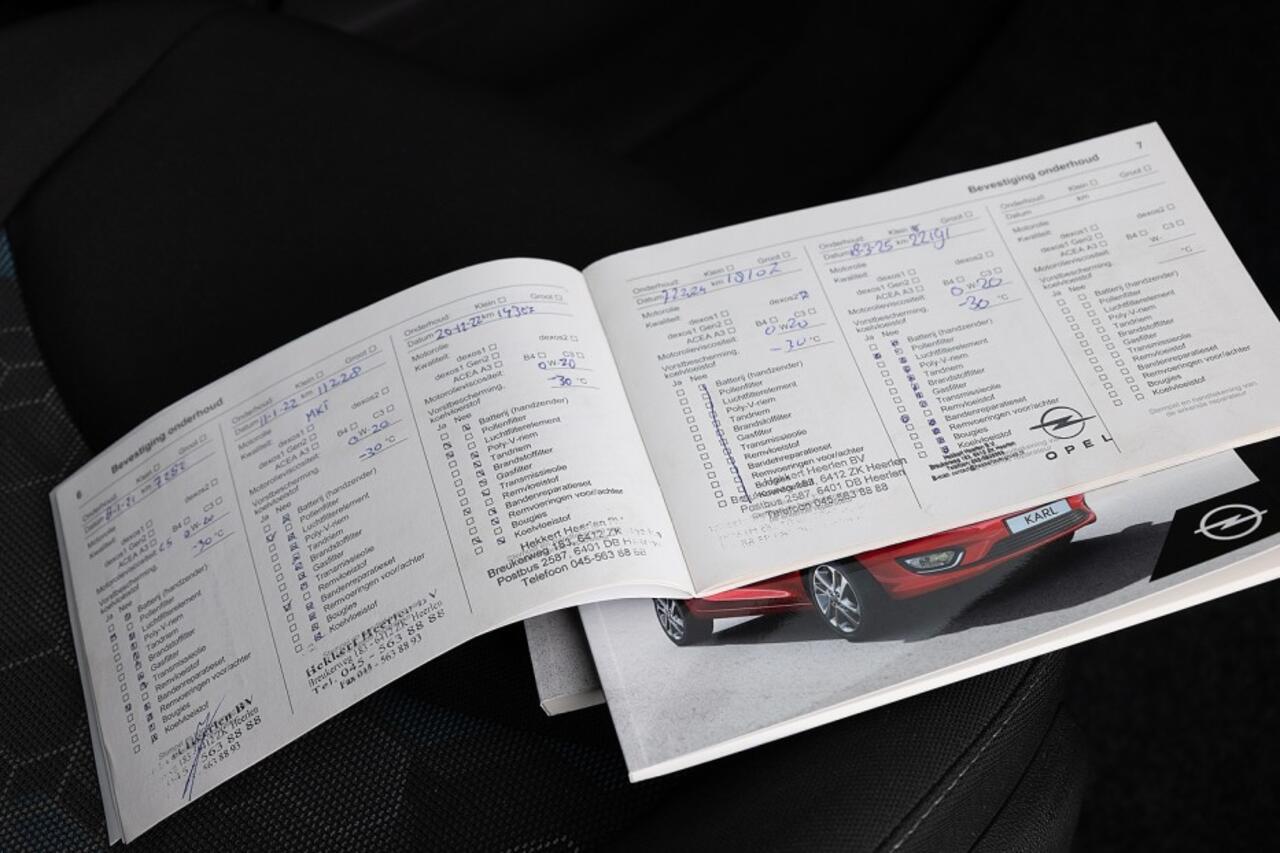 6
Bevestiging onderhoud
Onderhoud: Klein Groot
Datum km 7282
Motorolie
Kwaliteit: dexos1 dexos2
dexos1 Gen2 B4 C3
ACEA A3 C5 0 W- 20
Motorolieviscositeit:
Vorstbescherming, -30 °C
koelvloeistof
Ja Nee
Batterij (handzender)
Pollenfilter
Luchtfilterelement
Poly-V-riem
Tandriem
Brandstoffilter
Gasfilter
Transmissieolie
Remvloeistof
Bandenreparatieset
Remvoeringen voor/achter
Bougies
Koelvloeistof
Heerlen BV
6412 ZK Heerlen
045-563 88 88
Onderhoud: Klein Groot
Datum 11-1-22 km 11228
Motorolie MKT
Kwaliteit: dexos1 dexos2
dexos1 Gen2 B4 C3
ACEA A3 0 W- 20
Motorolieviscositeit:
Vorstbescherming, -30 °C
koelvloeistof
Ja Nee
Batterij (handzender)
Pollenfilter
Luchtfilterelement
Poly-V-riem
Tandriem
Brandstoffilter
Gasfilter
Transmissieolie
Remvloeistof
Bandenreparatieset
Remvoeringen voor/achter
Bougies
Koelvloeistof
Hekkert Heerlen B V
Breukerweg 183 - 6412 ZK Heerlen
Tel. 045 - 563 88 88
Fax 045 - 563 88 93
Onderhoud: Klein Groot
Datum 20-12-22 km 14307
Motorolie
Kwaliteit: dexos1 dexos2
dexos1 Gen2 B4 C3
ACEA A3 0 W- 20
Motorolieviscositeit:
Vorstbescherming, -30 °C
koelvloeistof
Ja Nee
Batterij (handzender)
Pollenfilter
Luchtfilterelement
Poly-V-riem
Tandriem
Brandstoffilter
Gasfilter
Transmissieolie
Remvloeistof
Bandenreparatieset
Remvoeringen voor/achter
Bougies
Koelvloeistof
Hekkert Heerlen BV
Breukerweg 183, 6412 ZK
Postbus 2587, 6401 DB Heerlen
Telefoon 045-563 88 88
Bevestiging onderhoud
7
Onderhoud: Klein Groot
Datum km 18102
Motorolie
Kwaliteit: dexos1 dexos2
dexos1 Gen2 B4 C3
ACEA A3 0 W 20
Motorolieviscositeit:
Vorstbescherming, -30 °C
koelvloeistof
Ja Nee
Batterij (handzender)
Pollenfilter
Luchtfilterelement
Poly-V-riem
Tandriem
Brandstoffilter
Gasfilter
Transmissieolie
Remvloeistof
Bandenreparatieset
Remvoeringen voor/achter
Bougies
Koelvloeistof
Hekkert Heerlen BV
Breukerweg 183, 6412 ZK Heerlen
Postbus 2587, 6401 DB Heerlen
Telefoon 045-563 88 88
Onderhoud: Klein Groot
Datum 18-3-25 km 22191
Motorolie
Kwaliteit: dexos1 dexos2
dexos1 Gen2 B4 C3
ACEA A3 0 W- 20
Motorolieviscositeit:
Vorstbescherming, -30 °C
koelvloeistof
Ja Nee
Batterij (handzender)
Pollenfilter
Luchtfilterelement
Poly-V-riem
Tandriem
Brandstoffilter
Gasfilter
Transmissieolie
Remvloeistof
Bandenreparatieset
Remvoeringen voor/achter
Bougies
Koelvloeistof
OPEL
Onderhoud: Klein Groot
Datum km
Motorolie
Kwaliteit: dexos1 dexos2
dexos1 Gen2 B4 C3
ACEA A3 W-
Motorolieviscositeit:
Vorstbescherming, °C
koelvloeistof
Ja Nee
Batterij (handzender)
Pollenfilter
Luchtfilterelement
Poly-V-riem
Tandriem
Brandstoffilter
Gasfilter
Transmissieolie
Remvloeistof
Bandenreparatieset
Remvoeringen voor/achter
Bougies
Koelvloeistof
Stempel en handtekening van
de erkende reparateur
KARL